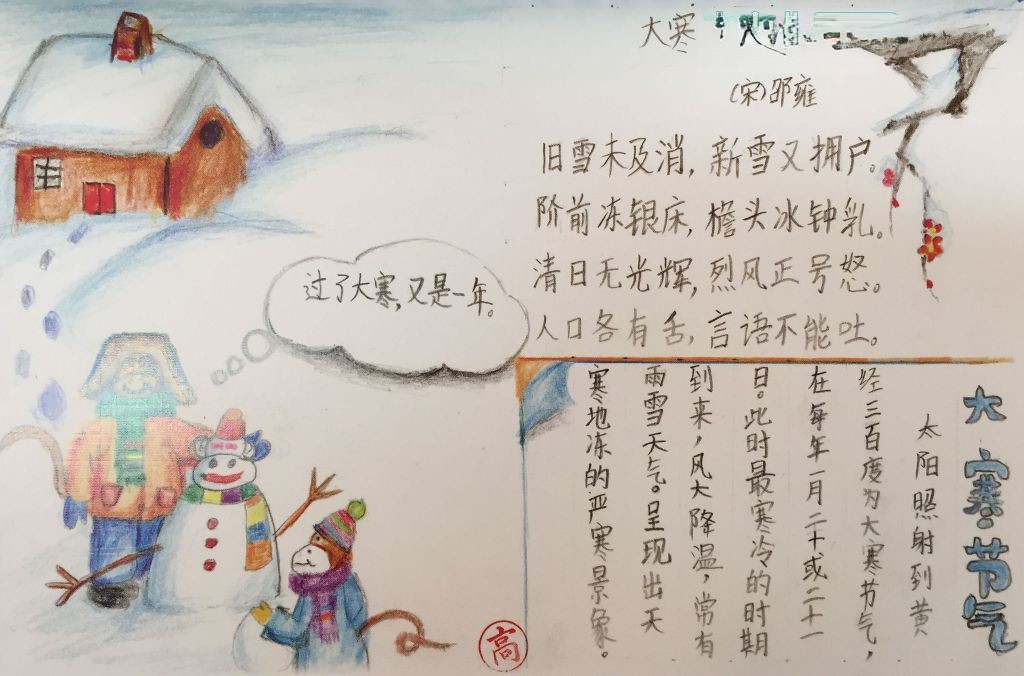 大寒
(宋)邵雍
旧雪未及消,新雪又拥户。
阶前冻银床,檐头冰钟乳。
清日无光辉,烈风正号怒。
人口各有舌,言语不能吐。
过了大寒,又是一年。
大寒·节气
太阳照射到黄
经三百度为大寒节气,
在每年一月二十或二十一
日。此时最寒冷的时期
到来,风大降温,常有
雨雪天气。呈现出天
寒地冻的严寒景象。
高